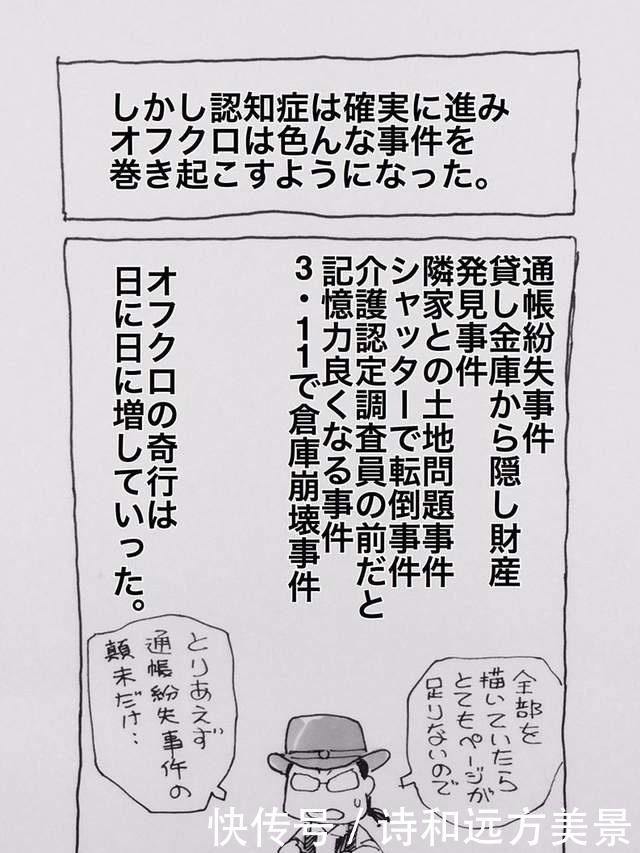 しかし認知症は確実に進み
オフクロは色んな事件を
巻き起こすようになった。
通帳紛失事件
貸し金庫から隠し財産
発見事件
隣家との土地問題事件
シャッターで転倒事件
介護認定調査員の前だと
記憶力良くなる事件
3・11で倉庫崩壊事件
オフクロの奇行は
日に日に増していった。
全部を
描いていたら
とてもページが
足りないので
とりあえず
通帳紛失事件の
顛末だけ…
快传号/诗和远方美景